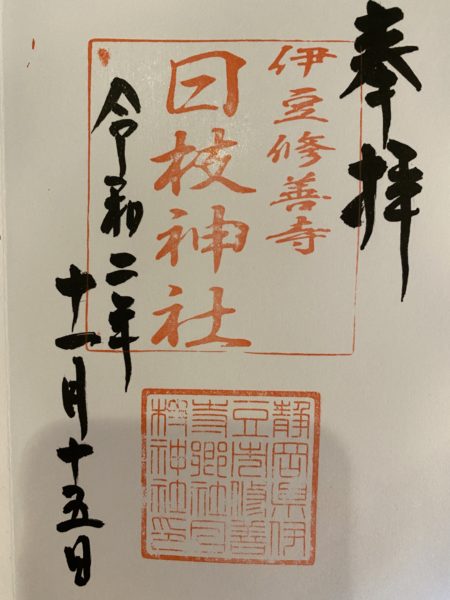 奉拝
伊豆修善寺
日枝神社
令和二年
十一月十五日
静岡県伊
豆市修善
寺郷社日
枝神社印